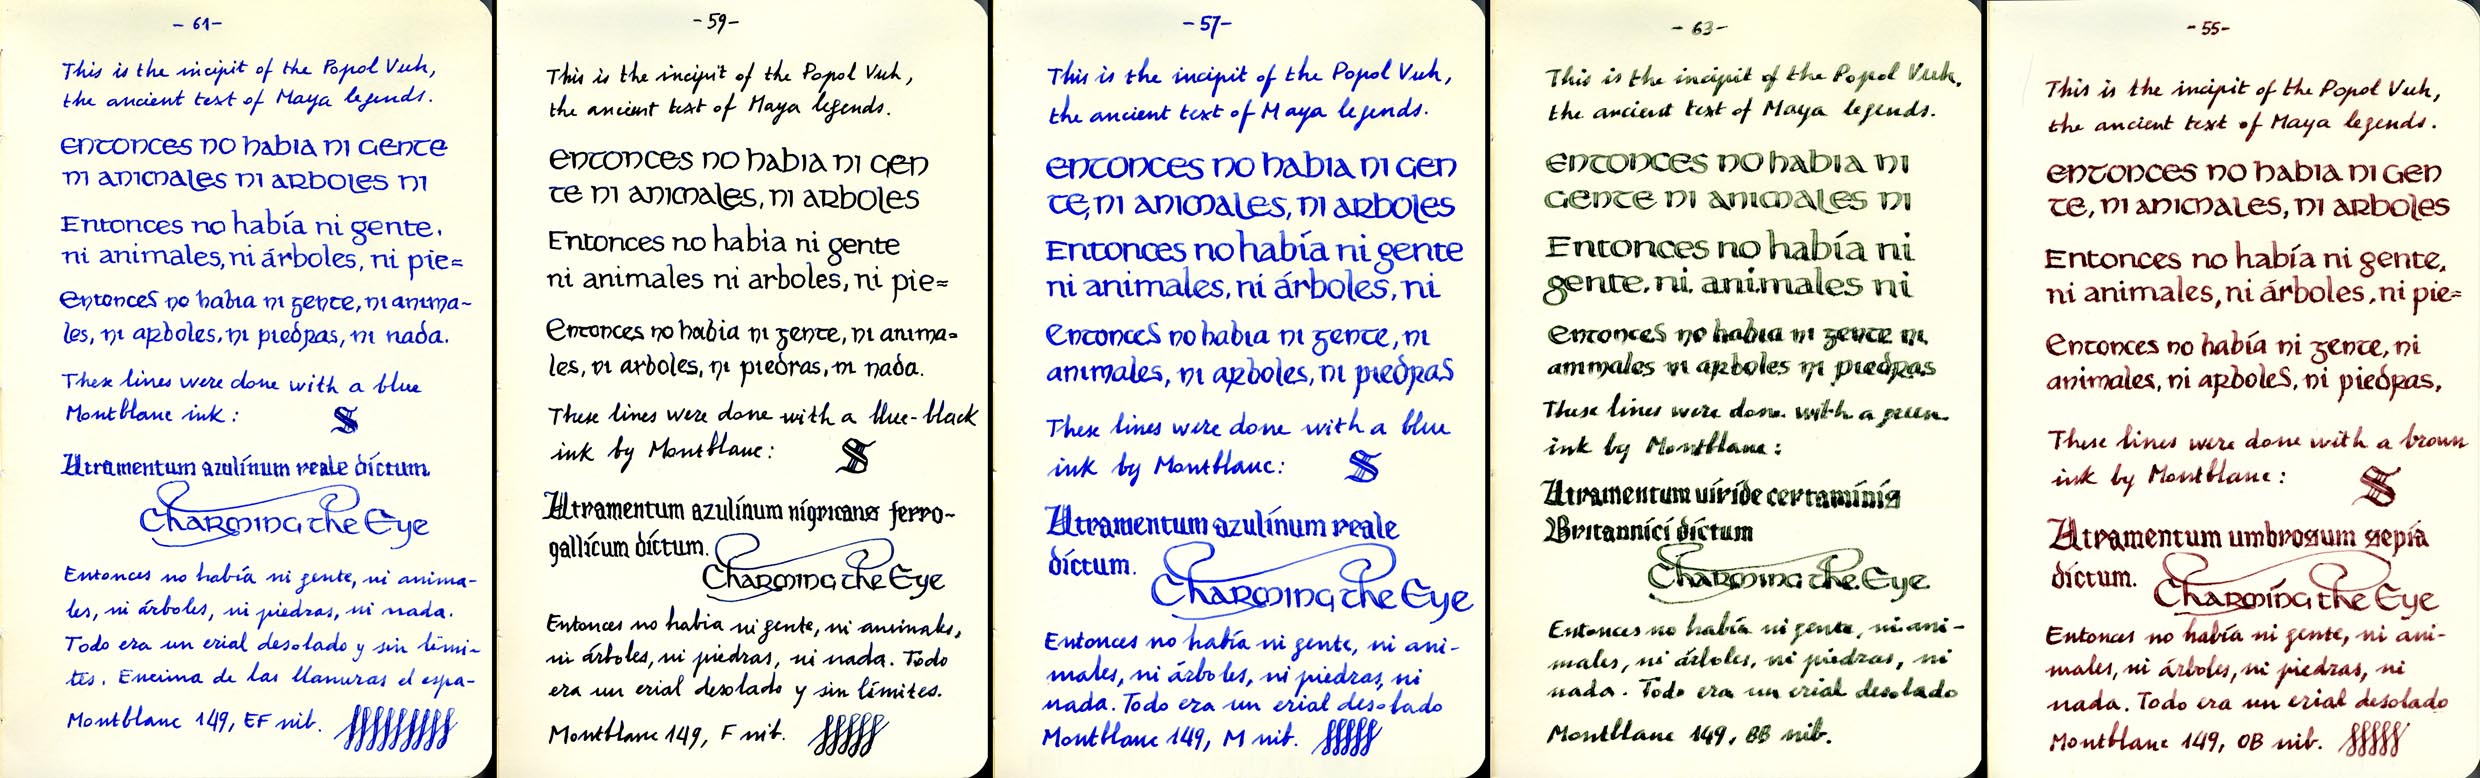 - 61 -
This is the incipit of the Popol Vuh,
the ancient text of Maya legends.
entonces no habia ni gente
ni animales ni arboles ni
Entonces no había ni gente,
ni animales, ni árboles, ni pie=
Entonces no habia ni gente, ni anima-
les, ni arboles, ni piedras, ni nada.
These lines were done with a blue
Montblanc ink: S
Atramentum azulínum reale díctum.
Charming the Eye
Entonces no había ni gente, ni anima-
les, ni árboles, ni piedras, ni nada.
Todo era un erial desolado y sin límí-
tes. Encima de las llanuras el espa-
Montblanc 149, EF nib.
- 59 -
This is the incipit of the Popol Vuh,
the ancient text of Maya legends.
entonces no habia ni gen
te ni animales, ni arboles
Entonces no habia ni gente
ni animales ni arboles, ni pie=
Entonces no habia ni gente, ni anima=
les, ni arboles, ni piedras, ni nada.
These lines were done with a blue-black
ink by Montblanc: S
Atramentum azulínum nigricans ferro-
gallícum díctum.
Charming the Eye
Entonces no habia ni gente, ni animales,
ni árboles, ni piedras, ni nada. Todo
era un erial desolado y sin límites.
Montblanc 149, F nib.
- 57 -
This is the incipit of the Popol Vuh,
the ancient text of Maya legends.
entonces no habia ni gen
te, ni animales, ni arboles
Entonces no había ni gente
ni animales, ni árboles, ni
Entonces no habia ni gente, ni
animales, ni arboles, ni piedras
These lines were done with a blue
ink by Montblanc: S
Atramentum azulínum reale
díctum.
Charming the Eye
Entonces no había ni gente, ni ani-
males, ni árboles, ni piedras, ni
nada. Todo era un erial desolado
Montblanc 149, M nib.
- 63 -
This is the incipit of the Popol Vuh,
the ancient text of Maya legends.
entonces no habia ni
gente ni animales ni
Entonces no había ni
gente, ni animales ni
Entonces no habia ni gente ni
animales ni arboles ni piedras
These lines were done with a green
ink by Montblanc:
Atramentum uíríde certamínis
Britanníci díctum
Charming the Eye
Entonces no había ni gente, ni ani-
males, ni árboles, ni piedras, ni
nada. Todo era un erial desolado
Montblanc 149, BB nib.
- 55 -
This is the incipit of the Popol Vuh,
the ancient text of Maya legends.
entonces no habia ni gen
te, ni animales, ni arboles
Entonces no había ni gente,
ni animales, ni árboles, ni pie=
Entonces no había ni gente, ni
animales, ni arboles, ni piedras,
These lines were done with a brown
ink by Montblanc: S
Atramentum umbrosum sepia
díctum.
Charmíng the Eye
Entonces no había ni gente, ni ani-
males, ni árboles, ni piedras, ni
nada. Todo era un erial desolado
Montblanc 149, OB nib.